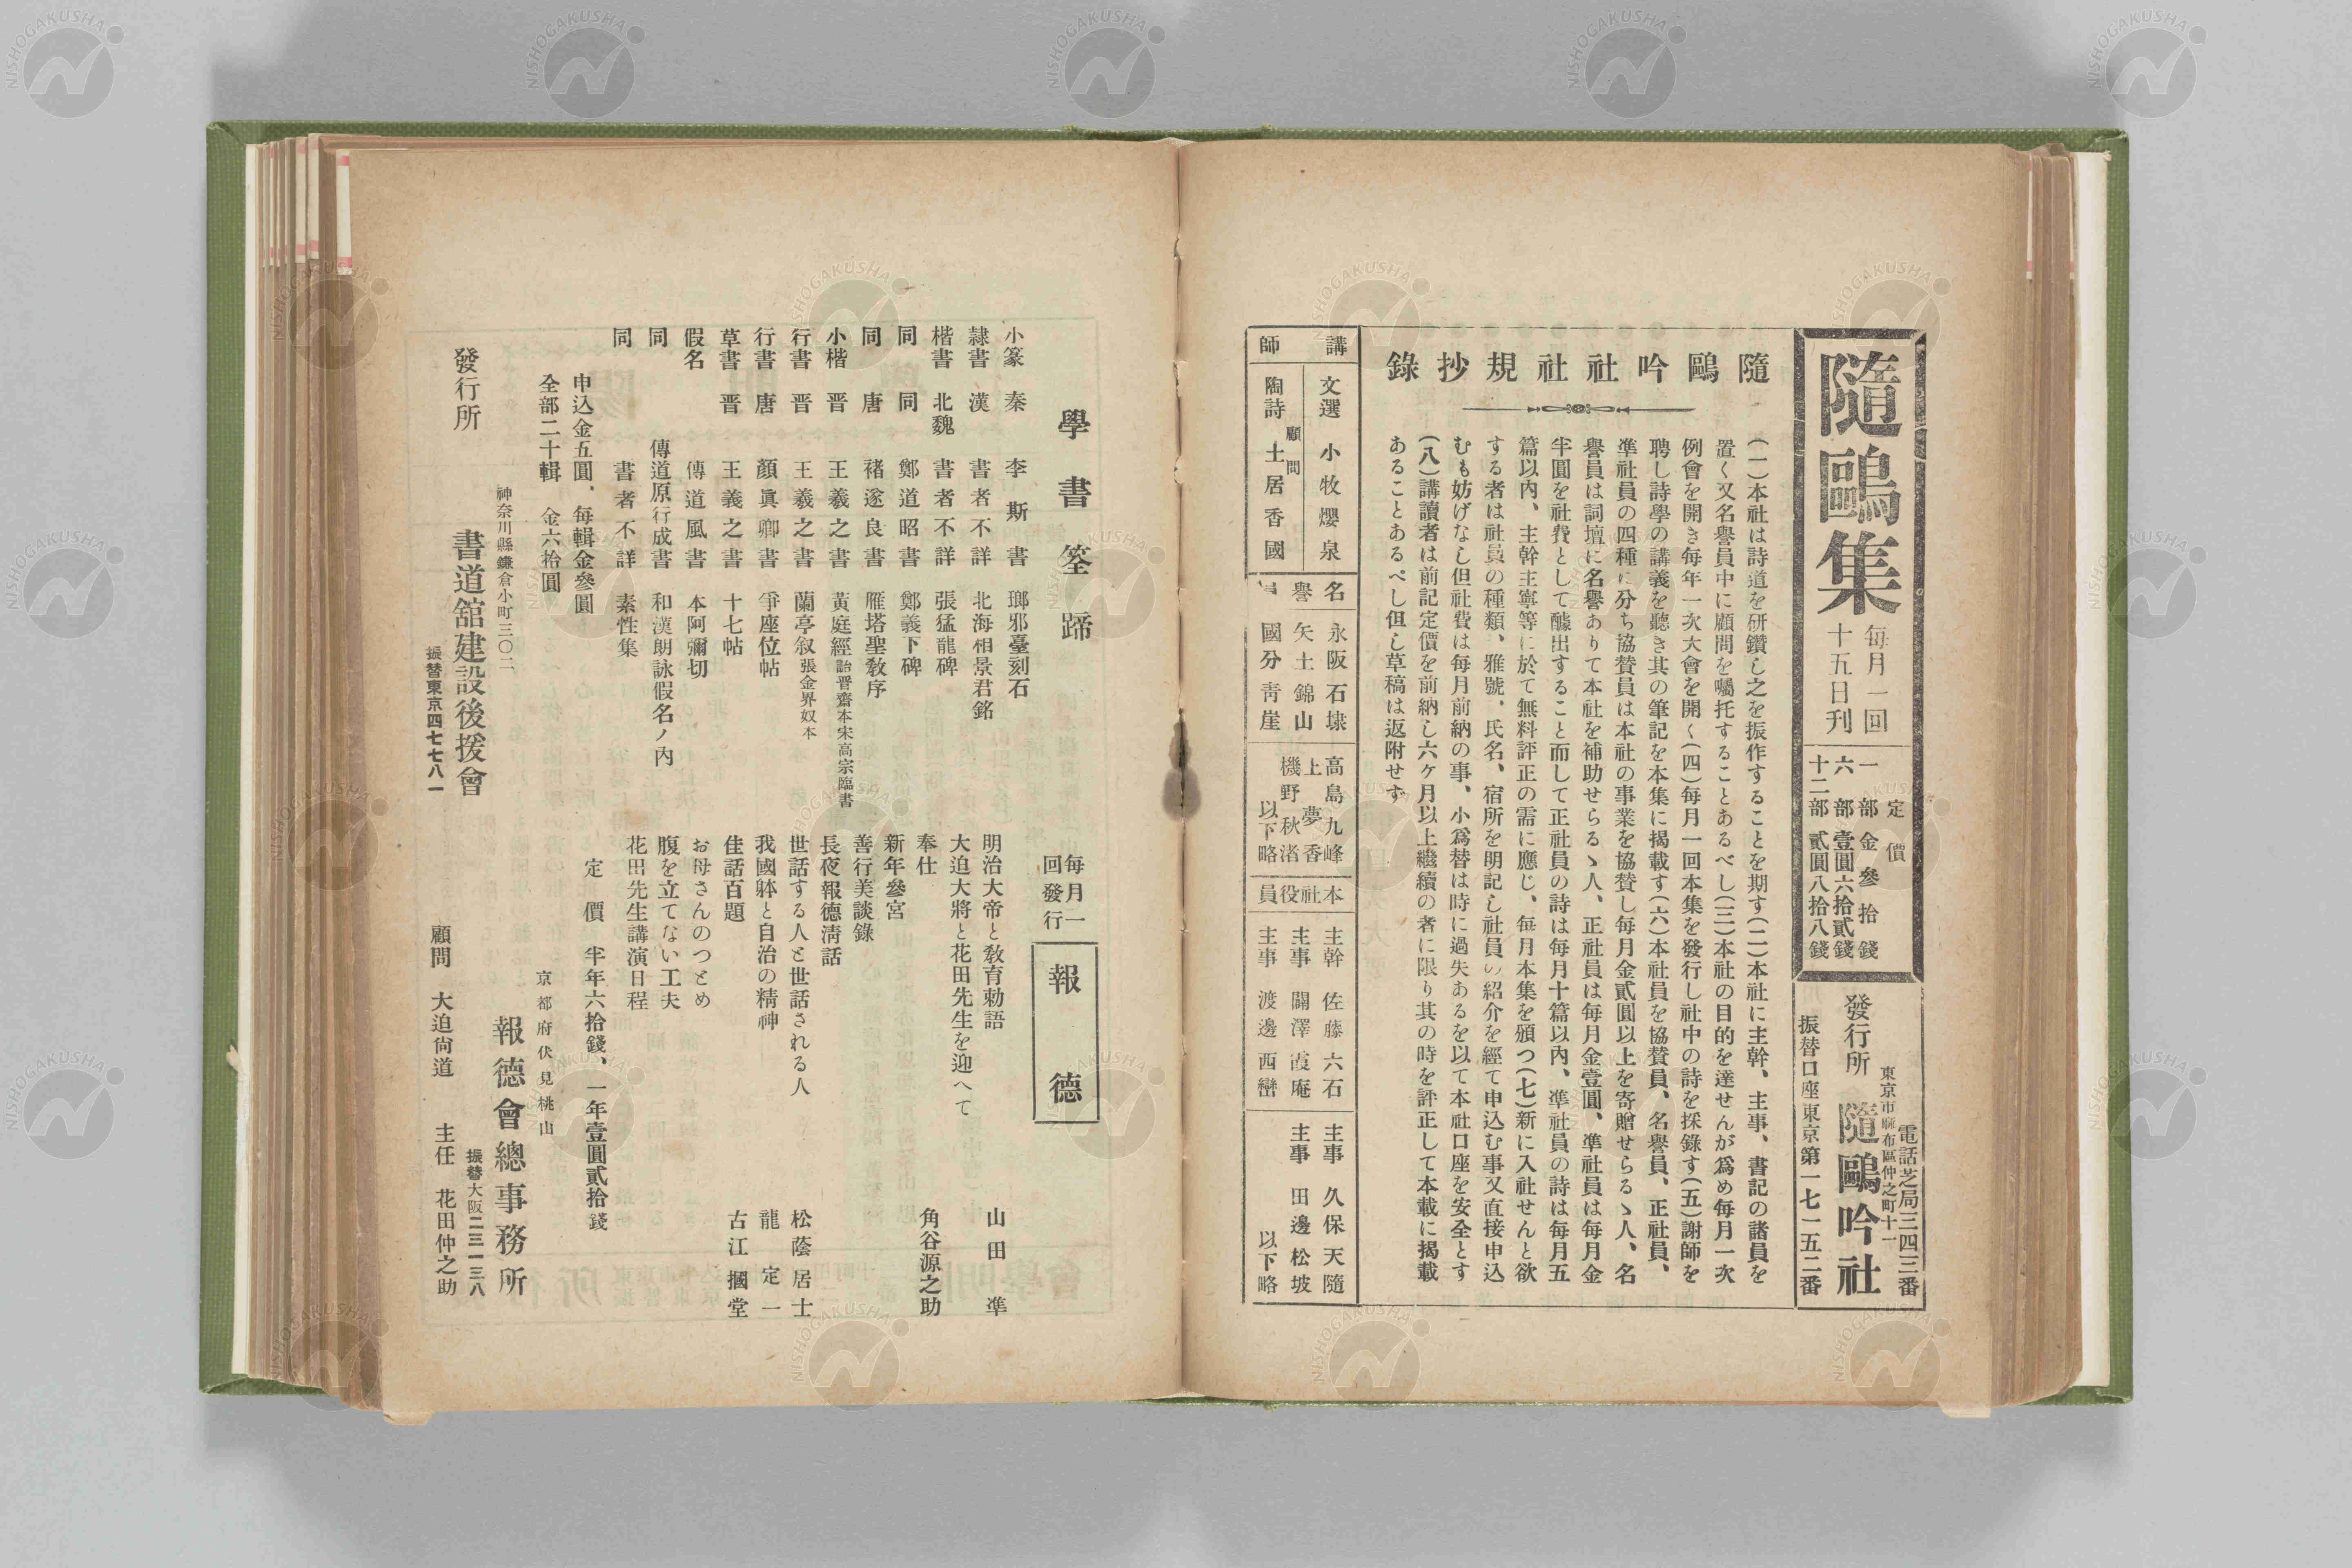 隨鷗集
毎月一回
十五日刊
定價
一部金參拾錢
六部壹圓六拾貳錢
十二部貳圓八拾八錢
電話芝局三四三番
東京市麻布區仲之町十一
發行所 隨鷗吟社
振替口座東京第一七一五二番
隨鷗吟社社規抄錄
(一)本社は詩道を研鑽し之を振作することを期す(二)本社に主幹、主事、書記の諸員を
置く又名譽員中に顧問を囑托することあるべし(三)本社の目的を達せんが爲め毎月一次
例會を開き毎年一次大會を開く(四)毎月一回本集を發行し社中の詩を採錄す(五)講師を
聘し詩學の講義を聽き其の筆記を本集に揭載す(六)本社員を協賛員、名譽員、正社員、
準社員の四種に分ち協賛員は本社の事業を協賛し毎月金貳圓以上を寄贈せらるゝ人、名
譽員は詞壇に名譽ありて本社を補助せらるゝ人、正社員は毎月金壹圓、準社員は毎月金
半圓を社費として醵出すること而して正社員の詩は毎月十篇以內、準社員の詩は毎月五
篇以內、主幹主事等に於て無料評正の需に應じ、毎月本集を頒つ(七)新に入社せんと欲
する者は社員の種類、雅號、氏名、宿所を明記し社員の紹介を經て申込む事又直接申込
むも妨げなし但社費は毎月前納の事、小爲替は時に過失あるを以て本社口座を安全とす
(八)講讀者は前記定價を前納し六ヶ月以上繼續の者に限り其の時を評正して本載に揭載
あることあるべし但し草稿は返附せず
講師
文選 小牧櫻泉
陶詩 顧問 土居香國
名譽員
永阪石埭
矢土錦山
國分青崖
高島九峰
上夢香
機野秋渚
以下略
本社役員
主幹 佐藤六石
主事 闗澤霞庵
主事 渡邊西巒
主事 久保天隨
主事 田邊松坡
以下略
學書筌蹄
小篆 秦 李斯書 瑯邪臺刻石
隷書 漢 書者不詳 北海相景君銘
楷書 北魏 書者不詳 張猛龍碑
同 同 鄭道昭書 鄭義下碑
同 唐 褚遂良書 雁塔聖敎序
小楷 晋 王羲之書 黃庭經詒晋齋本宋高宗臨書
行書 晋 王羲之書 蘭亭叙張金界奴本
行書 唐 顏眞卿書 爭座位帖
草書 晋 王義之書 十七帖
假名 傳道風書 本阿彌切
同 傳道原行成書 和漢朗詠假名ノ內
同 書者不詳 素性集
申込金五圓、毎輯金參圓
全部二十輯 金六拾圓
神奈川縣鎌倉小町三〇二
發行所 書道舘建設後援會
振替東京四七七八一
毎月一
回發行
報德
明治大帝と敎育勅語 山田準
大迫大將と花田先生を迎へて
奉仕 角谷源之助
新年參宮
善行美談錄
長夜報德清話
世話する人と世話される人 松蔭居士
我國躰と自治の精神 龍定一
佳話百題 古江摑堂
お母さんのつとめ
腹を立てない工夫
花田先生講演日程
定價 半年六拾錢、一年壹圓貳拾錢
京都府伏見桃山
報德會總事務所
振替大阪二三一三八
顧問 大迫尙道 主任 花田仲之助